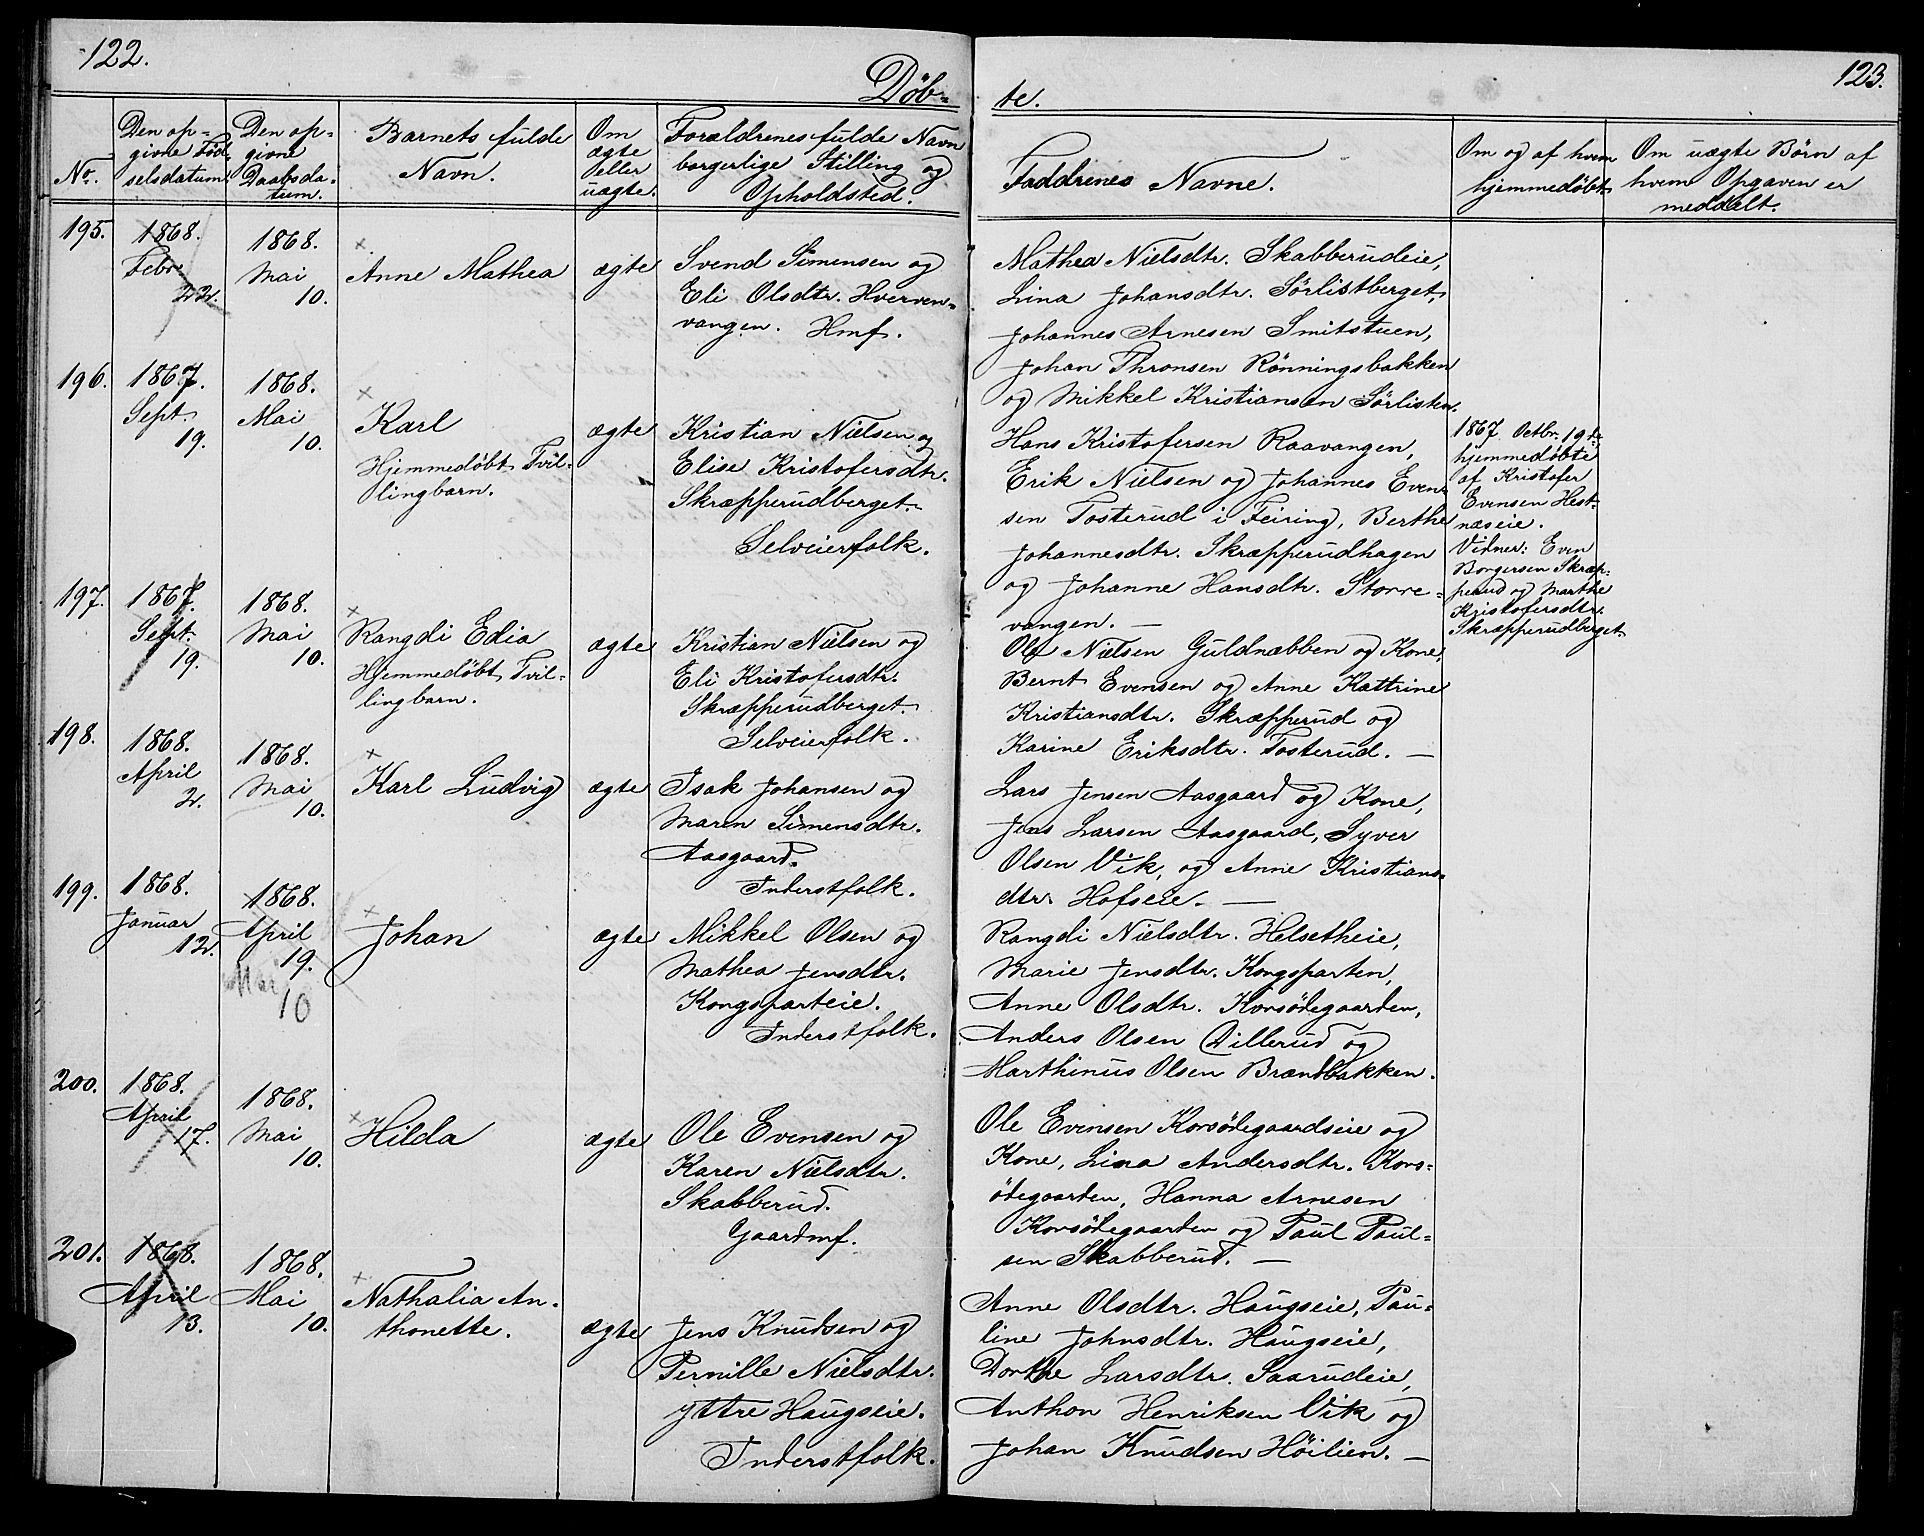 122.
Döb-
No.
Den op-
givne Fød-
selsdatum.
Den op-
givne
Daabsda-
tum.
Barnets fulde
Navn.
Om
ægte
eller
uægte.
Forældrenes fulde Navn
borgerlige Stilling og
Opholdsted.
195.
1868.
Febr.
22.
1868.
Mai
10.
Anne Mathea
ægte
Svend Simensen og
Eli Olsdtr. Hverven-
vangen. Hmf.
196.
1867.
Sept.
19.
1868.
Mai
10.
Karl
Hjemmedöbt Tvil-
lingbarn.
ægte
Kristian Nielsen og
Elise Kristofersdtr.
Skræpperudberget.
Selveierfolk.
197.
1867.
Sept.
19.
1868.
Mai
10.
Rangdi Edia
Hjemmedöbt Tvil-
lingbarn.
ægte
Kristian Nielsen og
Eli Kristofersdtr.
Skræpperudberget.
Selveierfolk.
198.
1868.
April
2.
1868.
Mai
10.
Karl Ludvig
ægte
Isak Johansen og
Maren Simensdtr.
Aasgaard.
Inderstfolk.
199.
1868.
Januar
12.
1868.
April
19.
Mai
10
Johan
ægte
Mikkel Olsen og
Mathea Jensdtr.
Kongsparteie.
Inderstfolk.
200.
1868.
April
17.
1868.
Mai
10.
Hilda
ægte
Ole Evensen og
Karen Nielsdtr.
Skabberud.
Gaardmf.
201.
1868.
April
13.
1868.
Mai
10.
Nathalia An-
thonette.
ægte
Jens Knudsen og
Pernille Nielsdtr.
yttre Haugseie.
Inderstfolk.
123.
te.
Faddrenes Navne.
Om og af hvem
hjemmedöbt.
Om uægte Börn af
hvem Opgaven er
meddelt.
Mathea Nielsdtr. Skabberudeie,
Lina Johansdtr. Sörlistberget,
Johannes Arnesen Smitstuen,
Johan Thronsen Rönningsbakken
og Mikkel Kristiansen Sörlisten.
Hans Kristofersen Raavangen,
Erik Nielsen og Johannes Even-
sen Tosterud i Feiring, Berthe
Johannesdtr. Skræpperudhagen
og Johanne Hansdtr. Storre-
vangen. —
1867 Octbr. 19de
hjemmedöbte
af Kristofer
Evensen Hest-
næseie.
Vidner: Even
Borgersen Skræp-
perud og Marthe
Kristofersdtr.
Skræpperudberget
Ole Nielsen Guldnæbben og Kone,
Bernt Evensen og Anne Kattrine
Kristiansdtr. Skræpperud og
Karine Eriksdtr. Tosterud. —
Lars Jensen Aasgaard og Kone,
Jens Larsen Aasgaard, Syver
Olsen Vik, og Anne Kristians-
dtr. Hofseie. —
Rangdi Nielsdtr. Helsetheie,
Marie Jensdtr. Kongsparten,
Anne Olsdtr. Korsödegaarden,
Anders Olsen Dillerud og
Marthinus Olsen Brændbakken.
Ole Evensen Korsödegaardseie og
Kone, Lina Andersdtr. Kors-
ödegaarden, Hanna Arnesen
Korsödegaarden og Paul Paul-
sen Skabberud. —
Anne Olsdtr. Haugseie, Pau-
line Johnsdtr. Haugseie,
Dorthe Larsdtr. Saarudeie,
Anthon Henriksen Vik og
Johan Knudsen Höilien. —